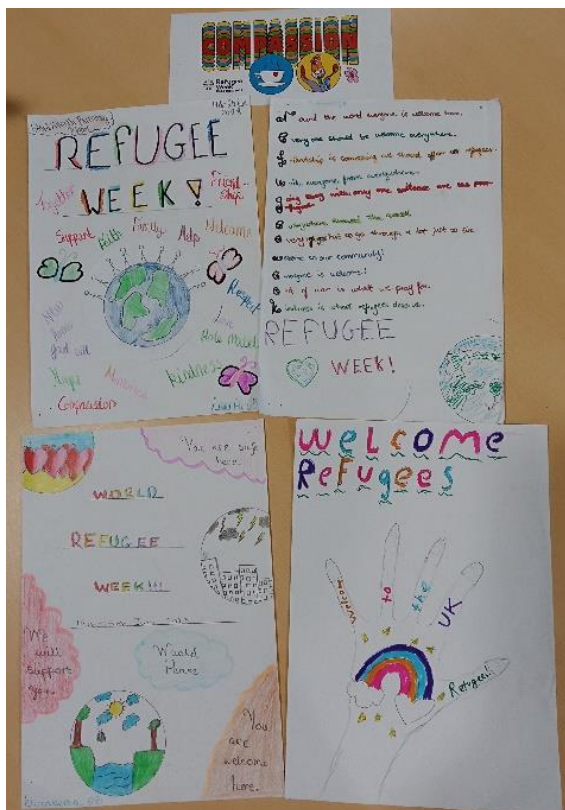 COMPASSION
Refugee
Week
REFUGEE
WEEK!
Together
Friend-
ship
Support
Faith
Family
Help
Welcome
Respect
Love
Hope
Kindness
Compassion
and the word everyone is welcome here.
everyone should be welcome everywhere.
is comforting we should offer to refugees.
everyone from everywhere.
everywhere around the world.
every refugee has to go through a lot just to live
welcome in our community!
Everyone is welcome!
of war is what we pray for.
Kindness is what refugees deserve.
REFUGEE
WEEK!
You are safe
here.
WORLD
REFUGEE
WEEK!!!
We
will
support
you.
World
Peace
You
are
welcome
here.
Welcome
Refugees
Welcome
to
the
UK
Refugees!!